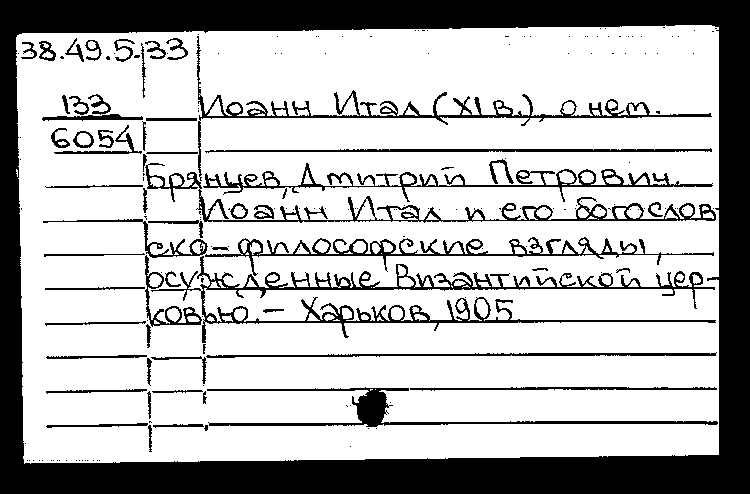 38.49.5.33
133 Иоанн Итал (XI в.), о нем.
6054
Брянцев, Дмитрий Петрович.
Иоанн Итал и его богослов-
ско-философские взгляды,
осужденные Византийской цер-
ковью. – Харьков, 1905